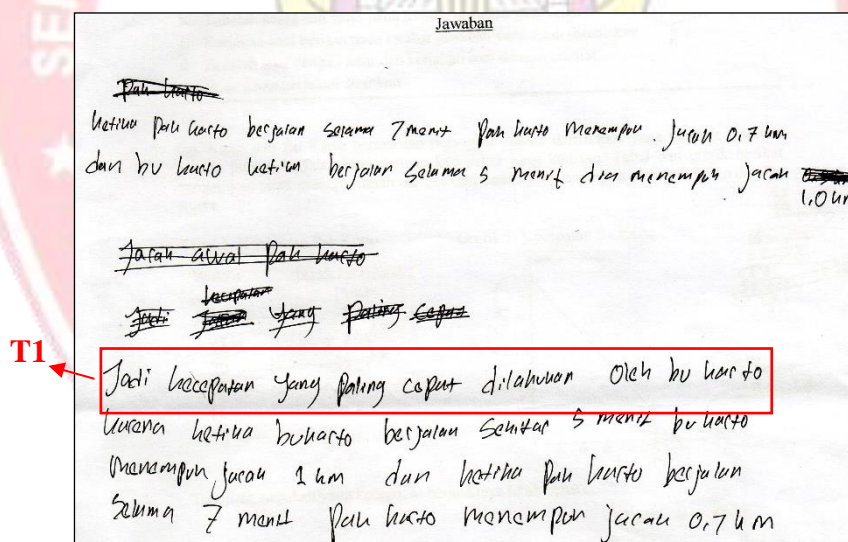 Jawaban
Pak harto
ketika pak harto berjalan selama 7 menit pak harto menempuh jarak 0.7 km
dan bu harto ketika berjalan selama 5 menit dia menempuh jarak
1.0 km
Jarak awal pak harto
kecepatan
Jadi yang paling cepat
T1
Jadi kecepatan yang paling cepat dilakukan oleh bu harto
karena ketika buharto berjalan sekitar 5 menit bu harto
menempuh jarak 1 km dan ketika pak harto berjalan
selama 7 menit pak harto menempuh jarak 0.7 km